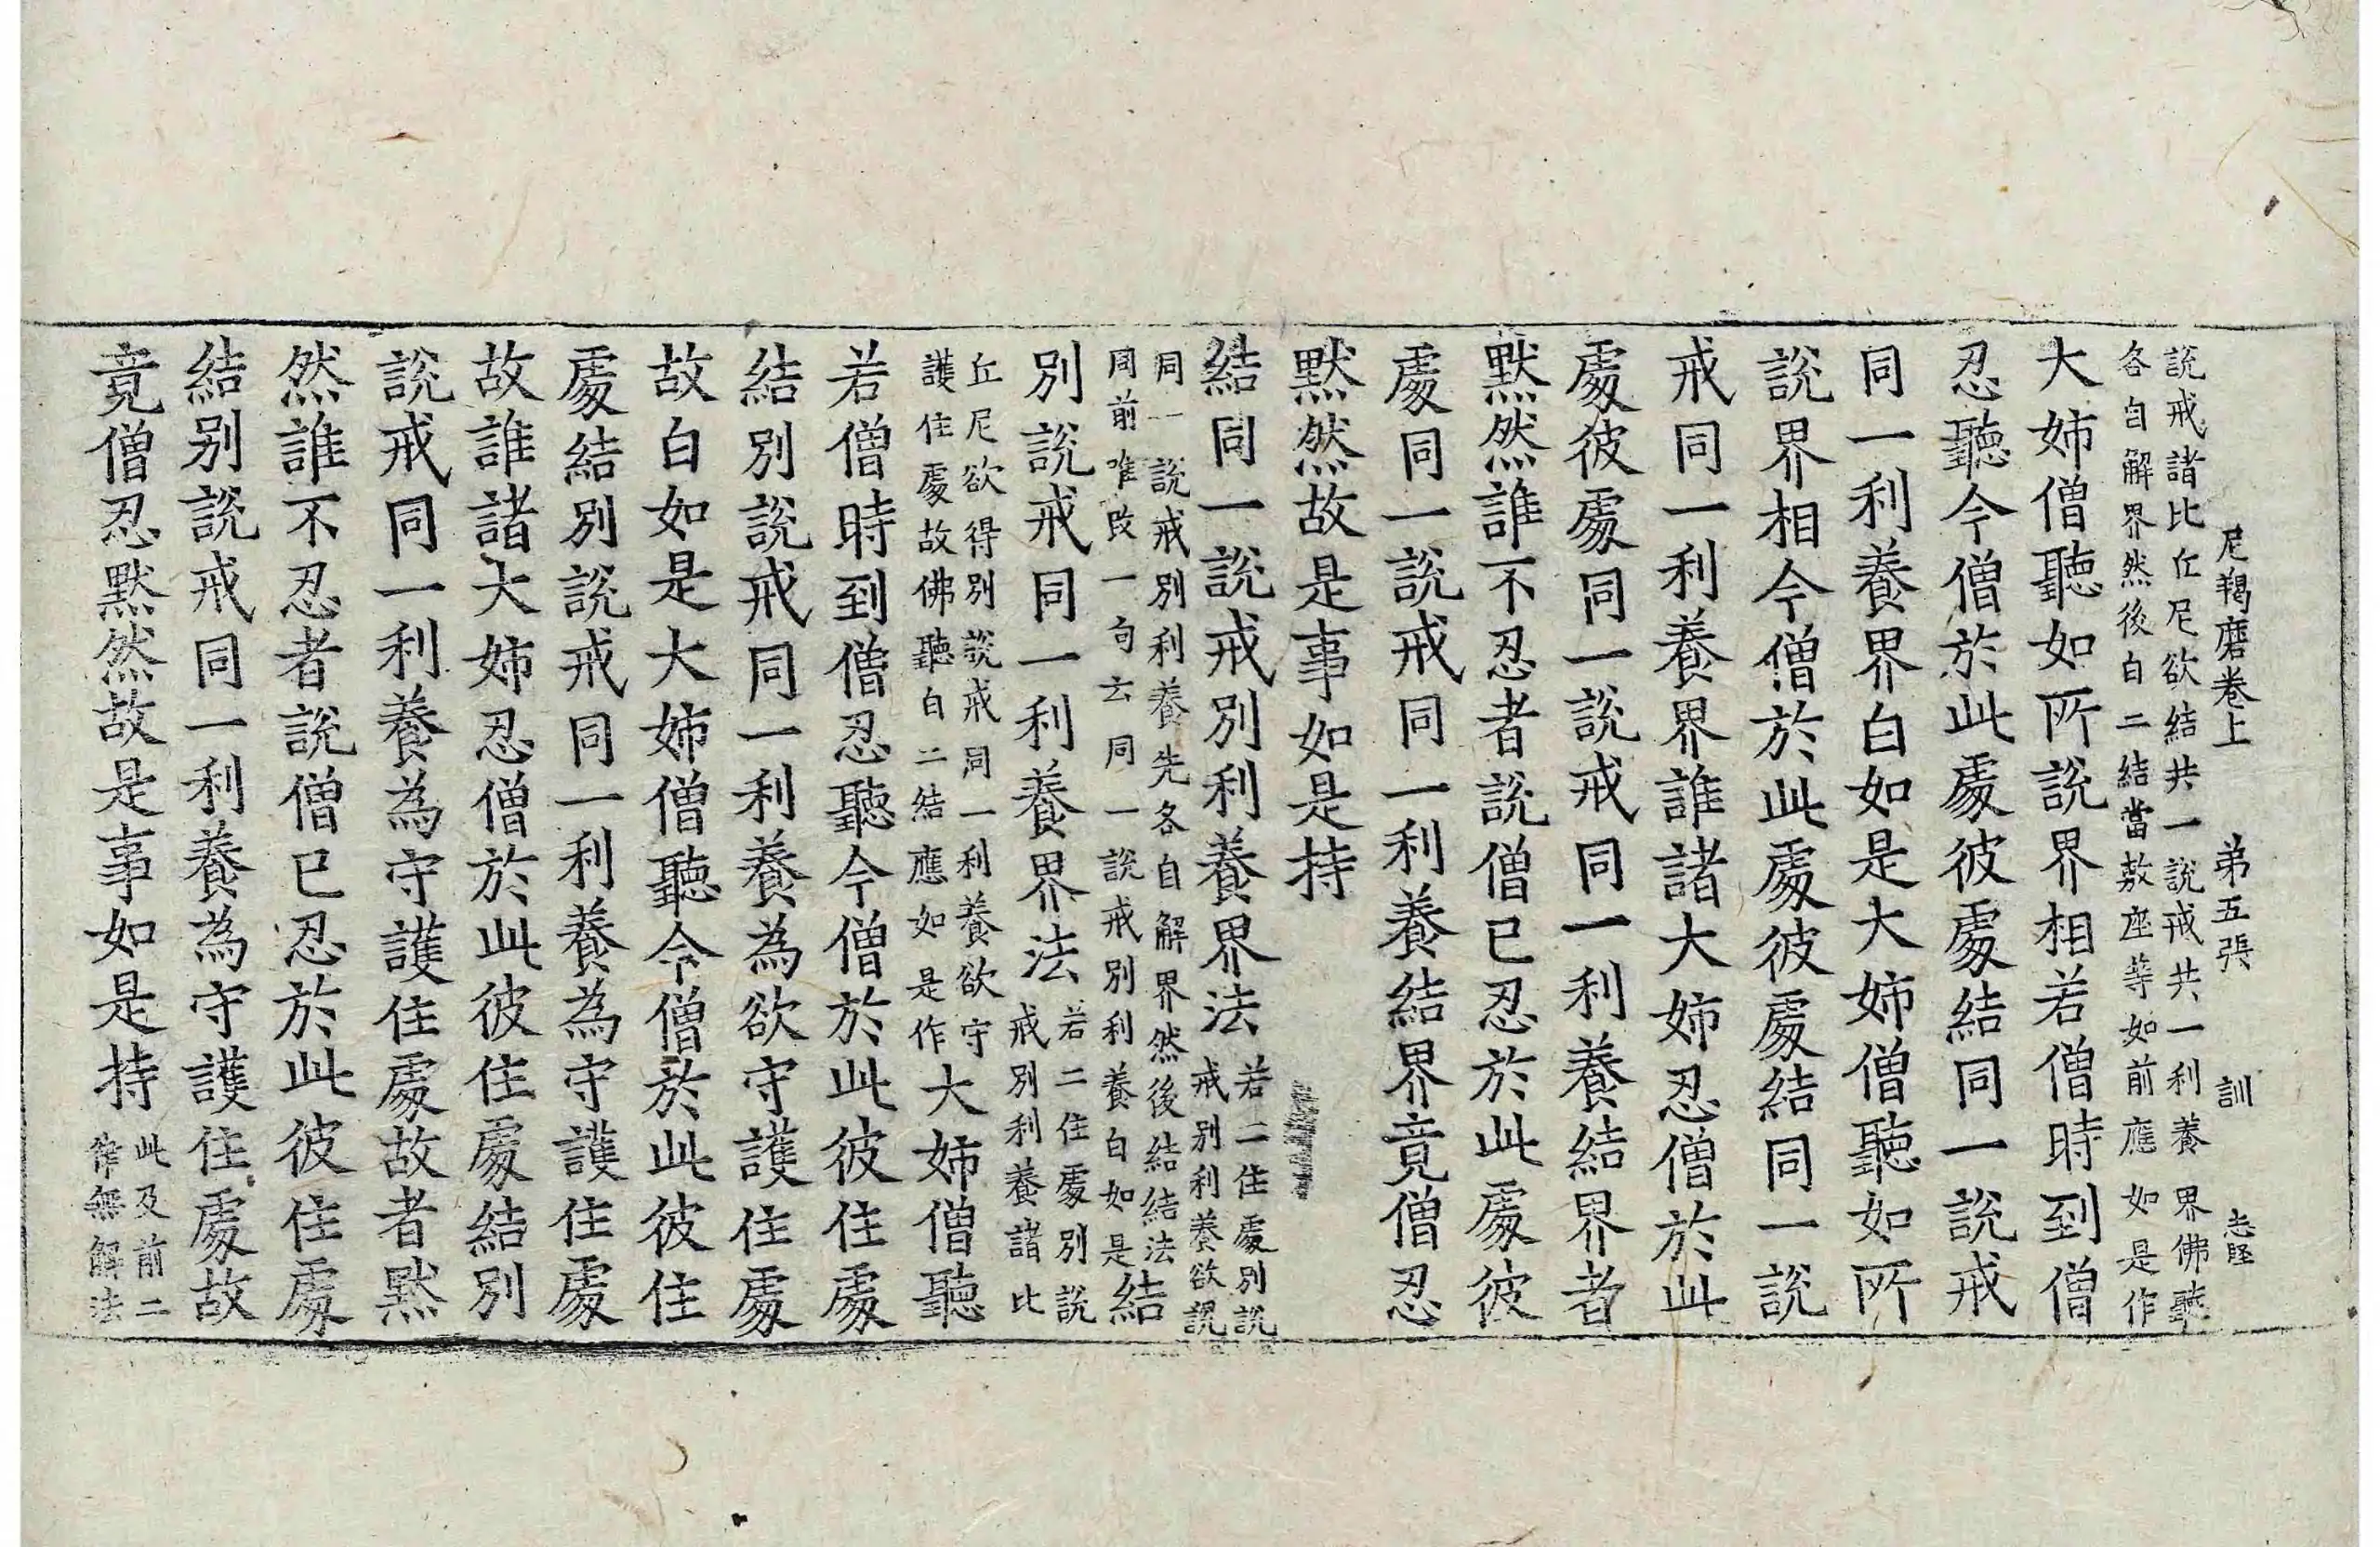 尼羯磨卷上 弟五張 訓 志堅
說戒諸比丘尼欲結共一說戒共一利養界佛聽
各自解界然後白二結當敷座等如前應如是作
大姉僧聽如所說界相若僧時到僧
忍聽今僧於此處彼處結同一說戒
同一利養界白如是大姉僧聽如所
說界相今僧於此處彼處結同一說
戒同一利養界誰諸大姉忍僧於此
處彼處同一說戒同一利養結界者
默然誰不忍者說僧已忍於此處彼
處同一說戒同一利養結界竟僧忍
默然故是事如是持
結同一說戒別利養界法
若二住處別說
戒別利養欲說
同一說戒別利養先各自解界然後結結法
同前唯改一句云同一說戒別利養白如是
結
別說戒同一利養界法
若二住處別說
戒別利養諸比
丘尼欲得別說戒同一利養欲守
護住處故佛聽白二結應如是作
大姉僧聽
若僧時到僧忍聽今僧於此彼住處
結別說戒同一利養為欲守護住處
故白如是大姉僧聽今僧於此彼住
處結別說戒同一利養為守護住處
故誰諸大姉忍僧於此彼住處結別
說戒同一利養為守護住處故者默
然誰不忍者說僧已忍於此彼住處
結别說戒同一利養為守護住處故
竟僧忍默然故是事如是持
此及前二
作無解法